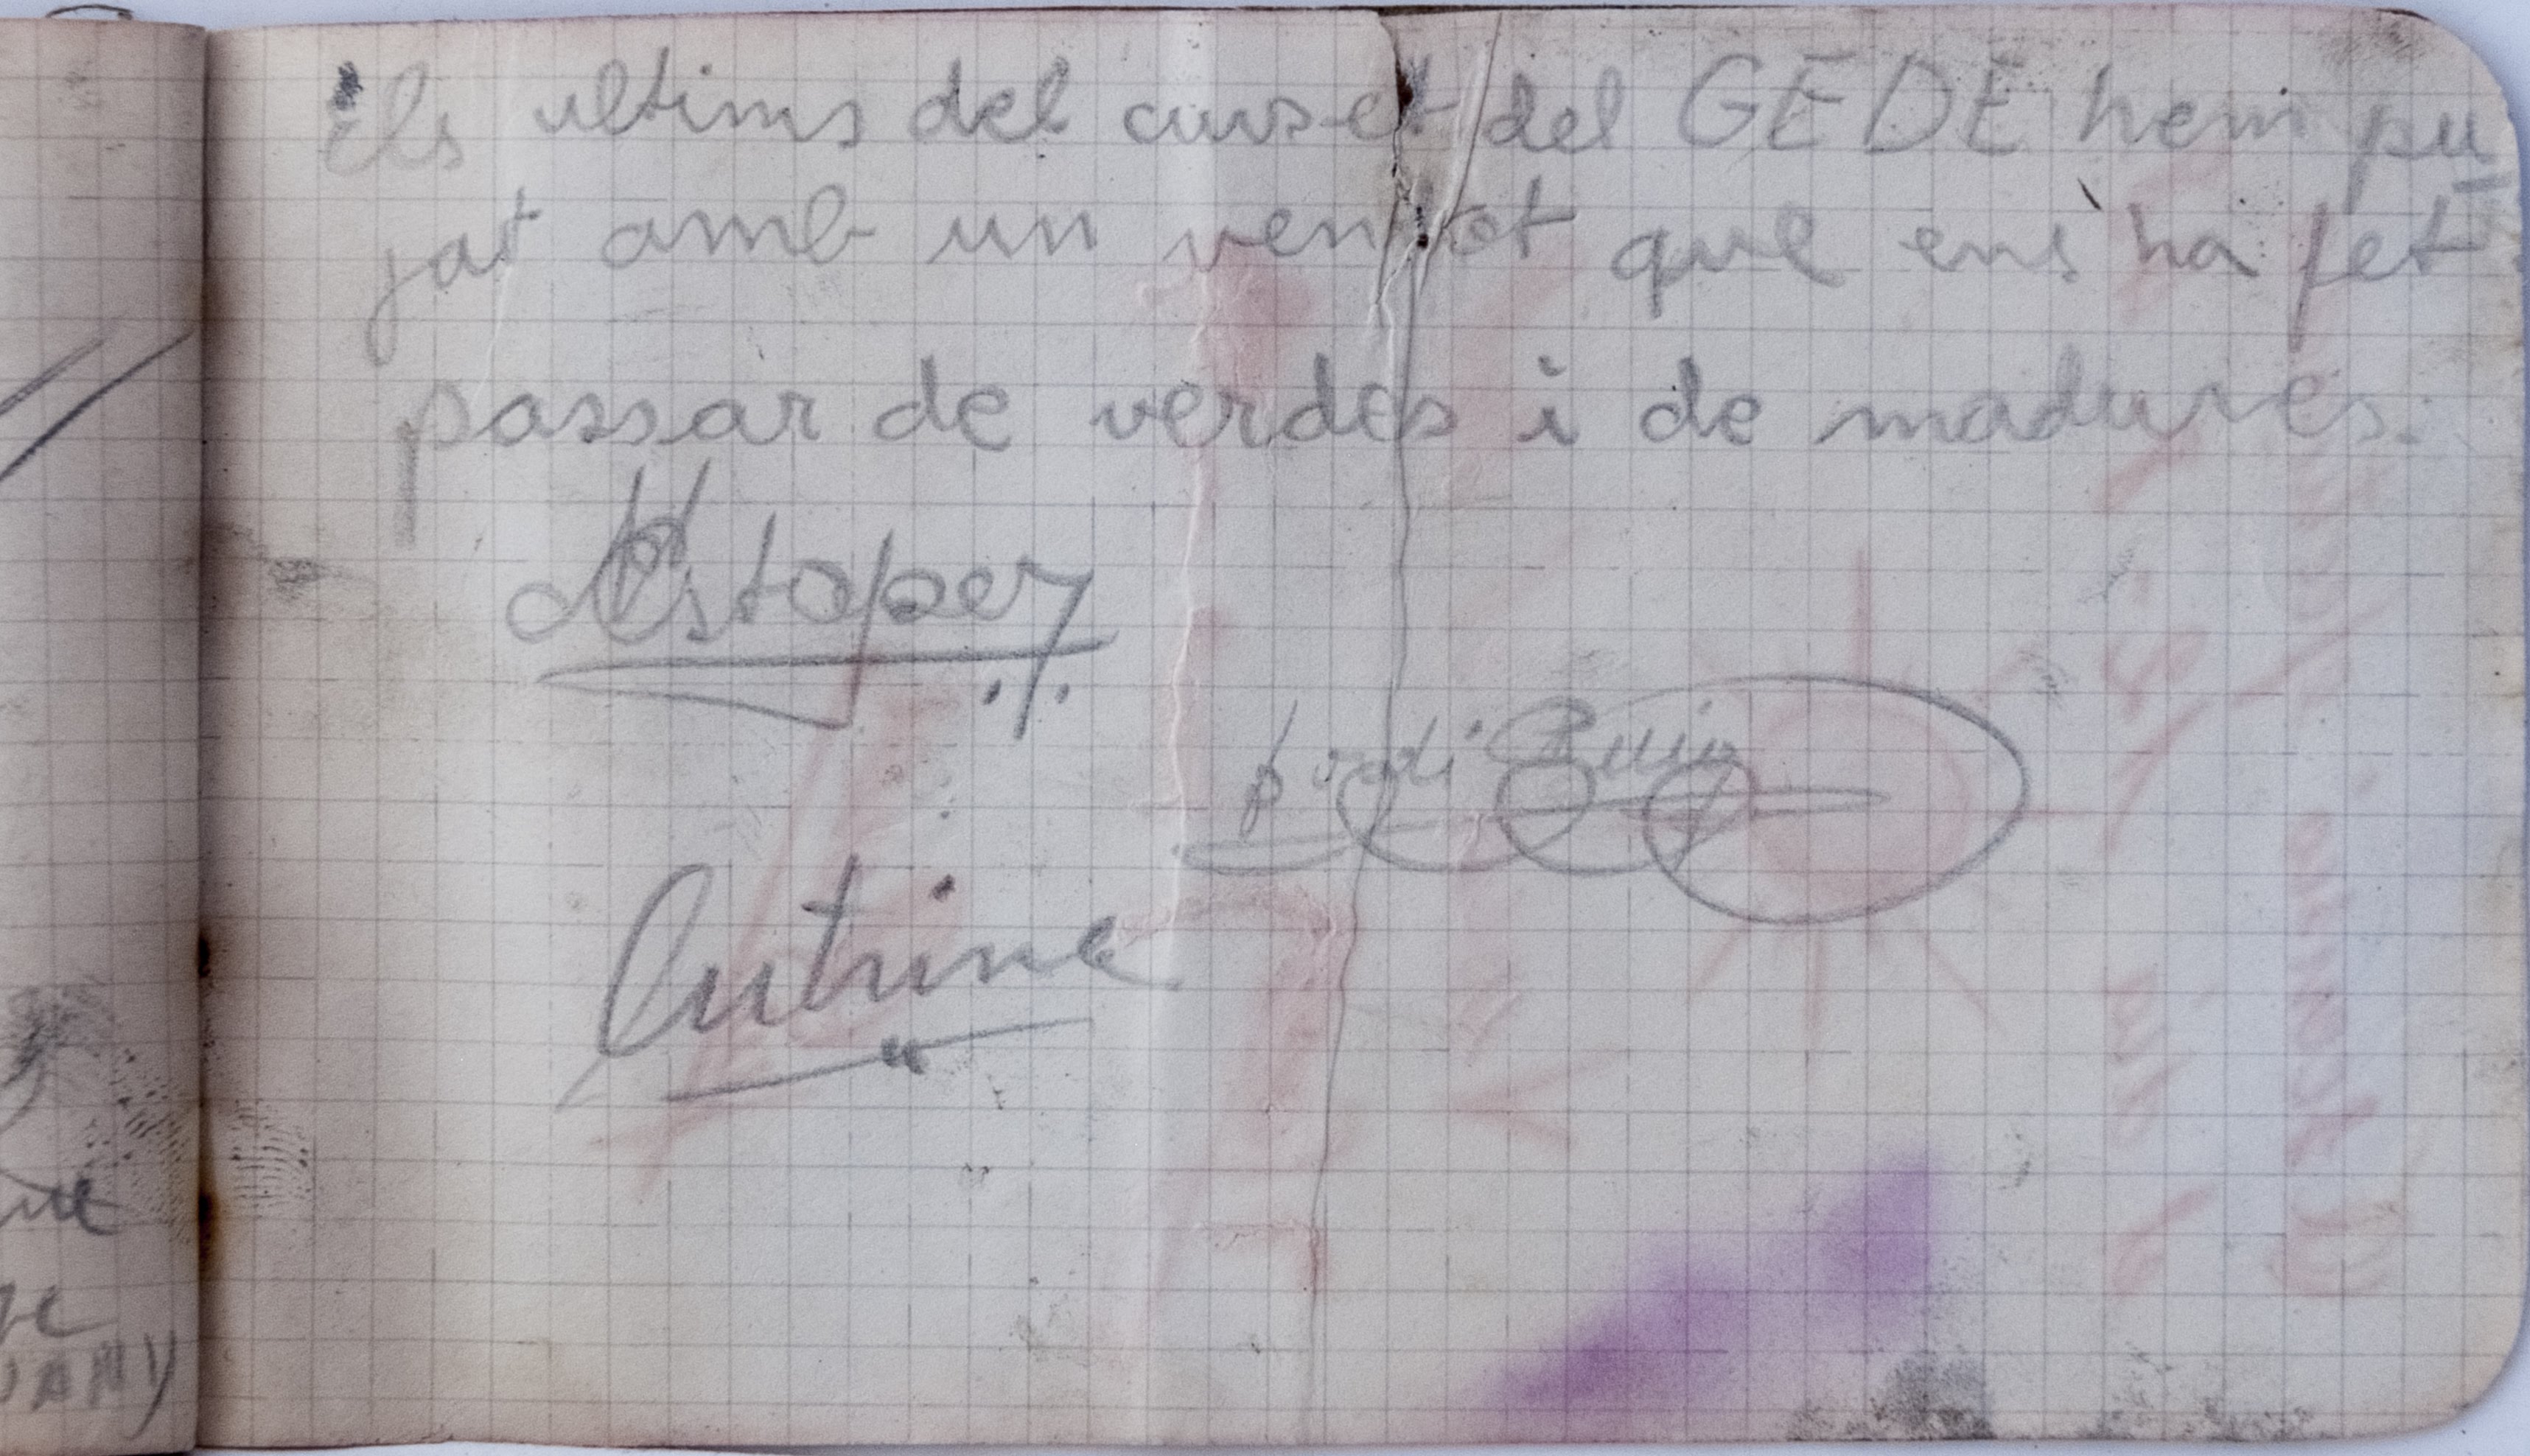 Els ultims del curset del GEDE hem pu
jat amb un ventot que ens ha fet
passar de verdes i de madures.
Jordi Puig